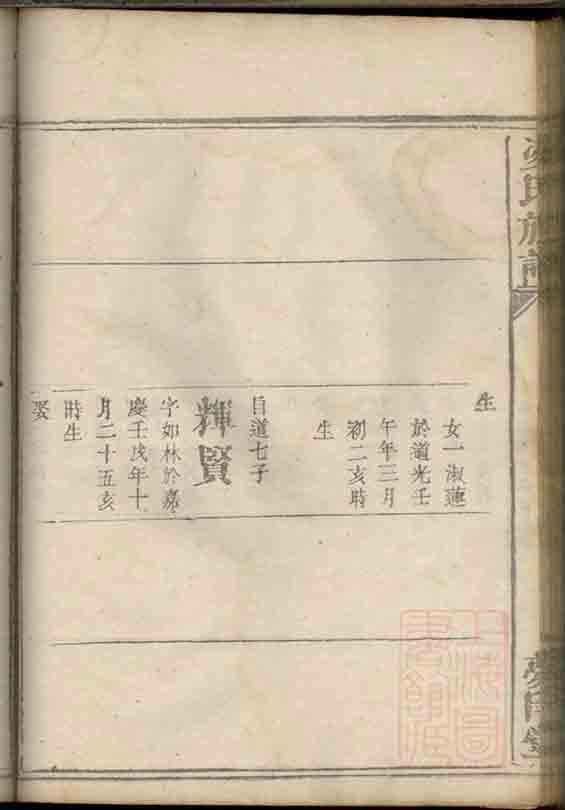 生
女一淑蓮
於道光壬
午年三月
初二亥時
生
自道七子
輝賢
字如林於嘉
慶壬戌年十
月二十五亥
時生
娶
氏族譜
上海圖
書館藏